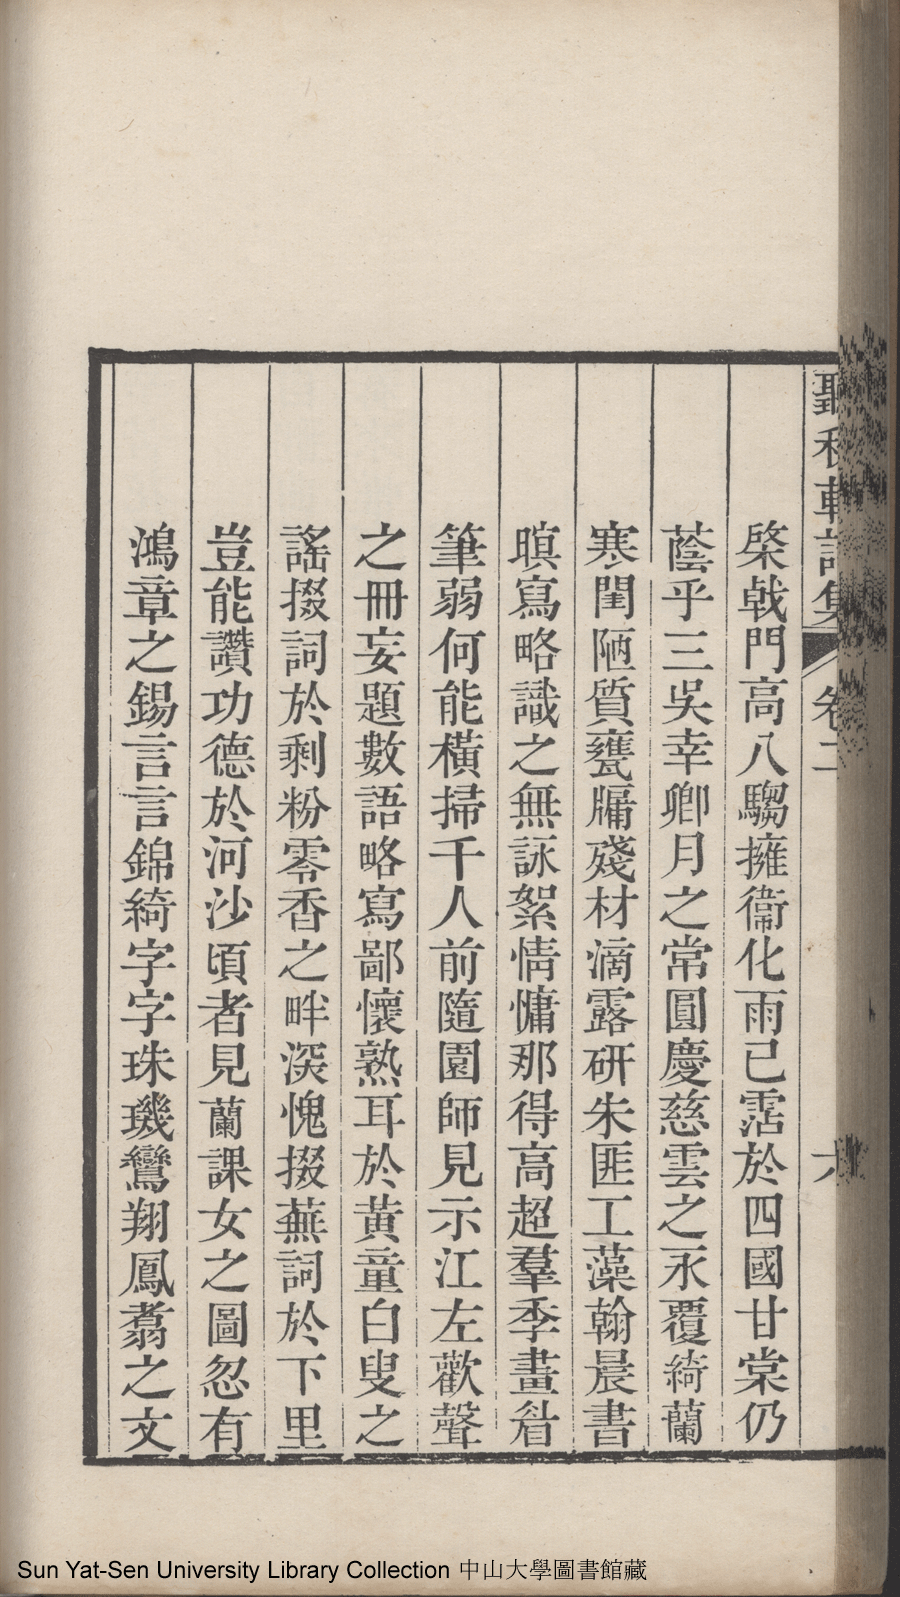 聽秋軒詩集 卷二 六
棨戟門高八騶擁衞化雨已霑於四國甘棠仍
蔭乎三吳幸卿月之常圓慶慈雲之永覆綺蘭
寒閨陋質甕牖殘材滴露研朱匪工藻翰晨書
暝寫略識之無詠絮情慵那得高超羣季畫眉
筆弱何能橫掃千人前隨園師見示江左歡聲
之冊妄題數語略寫鄙懷熟耳於黃童白叟之
謠掇詞於剩粉零香之畔深愧掇蕪詞於下里
豈能讚功德於河沙頃者見蘭課女之圖忽有
鴻章之錫言言錦綺字字珠璣鸞翔鳳翥之文
Sun Yat-Sen University Library Collection 中山大學圖書館藏